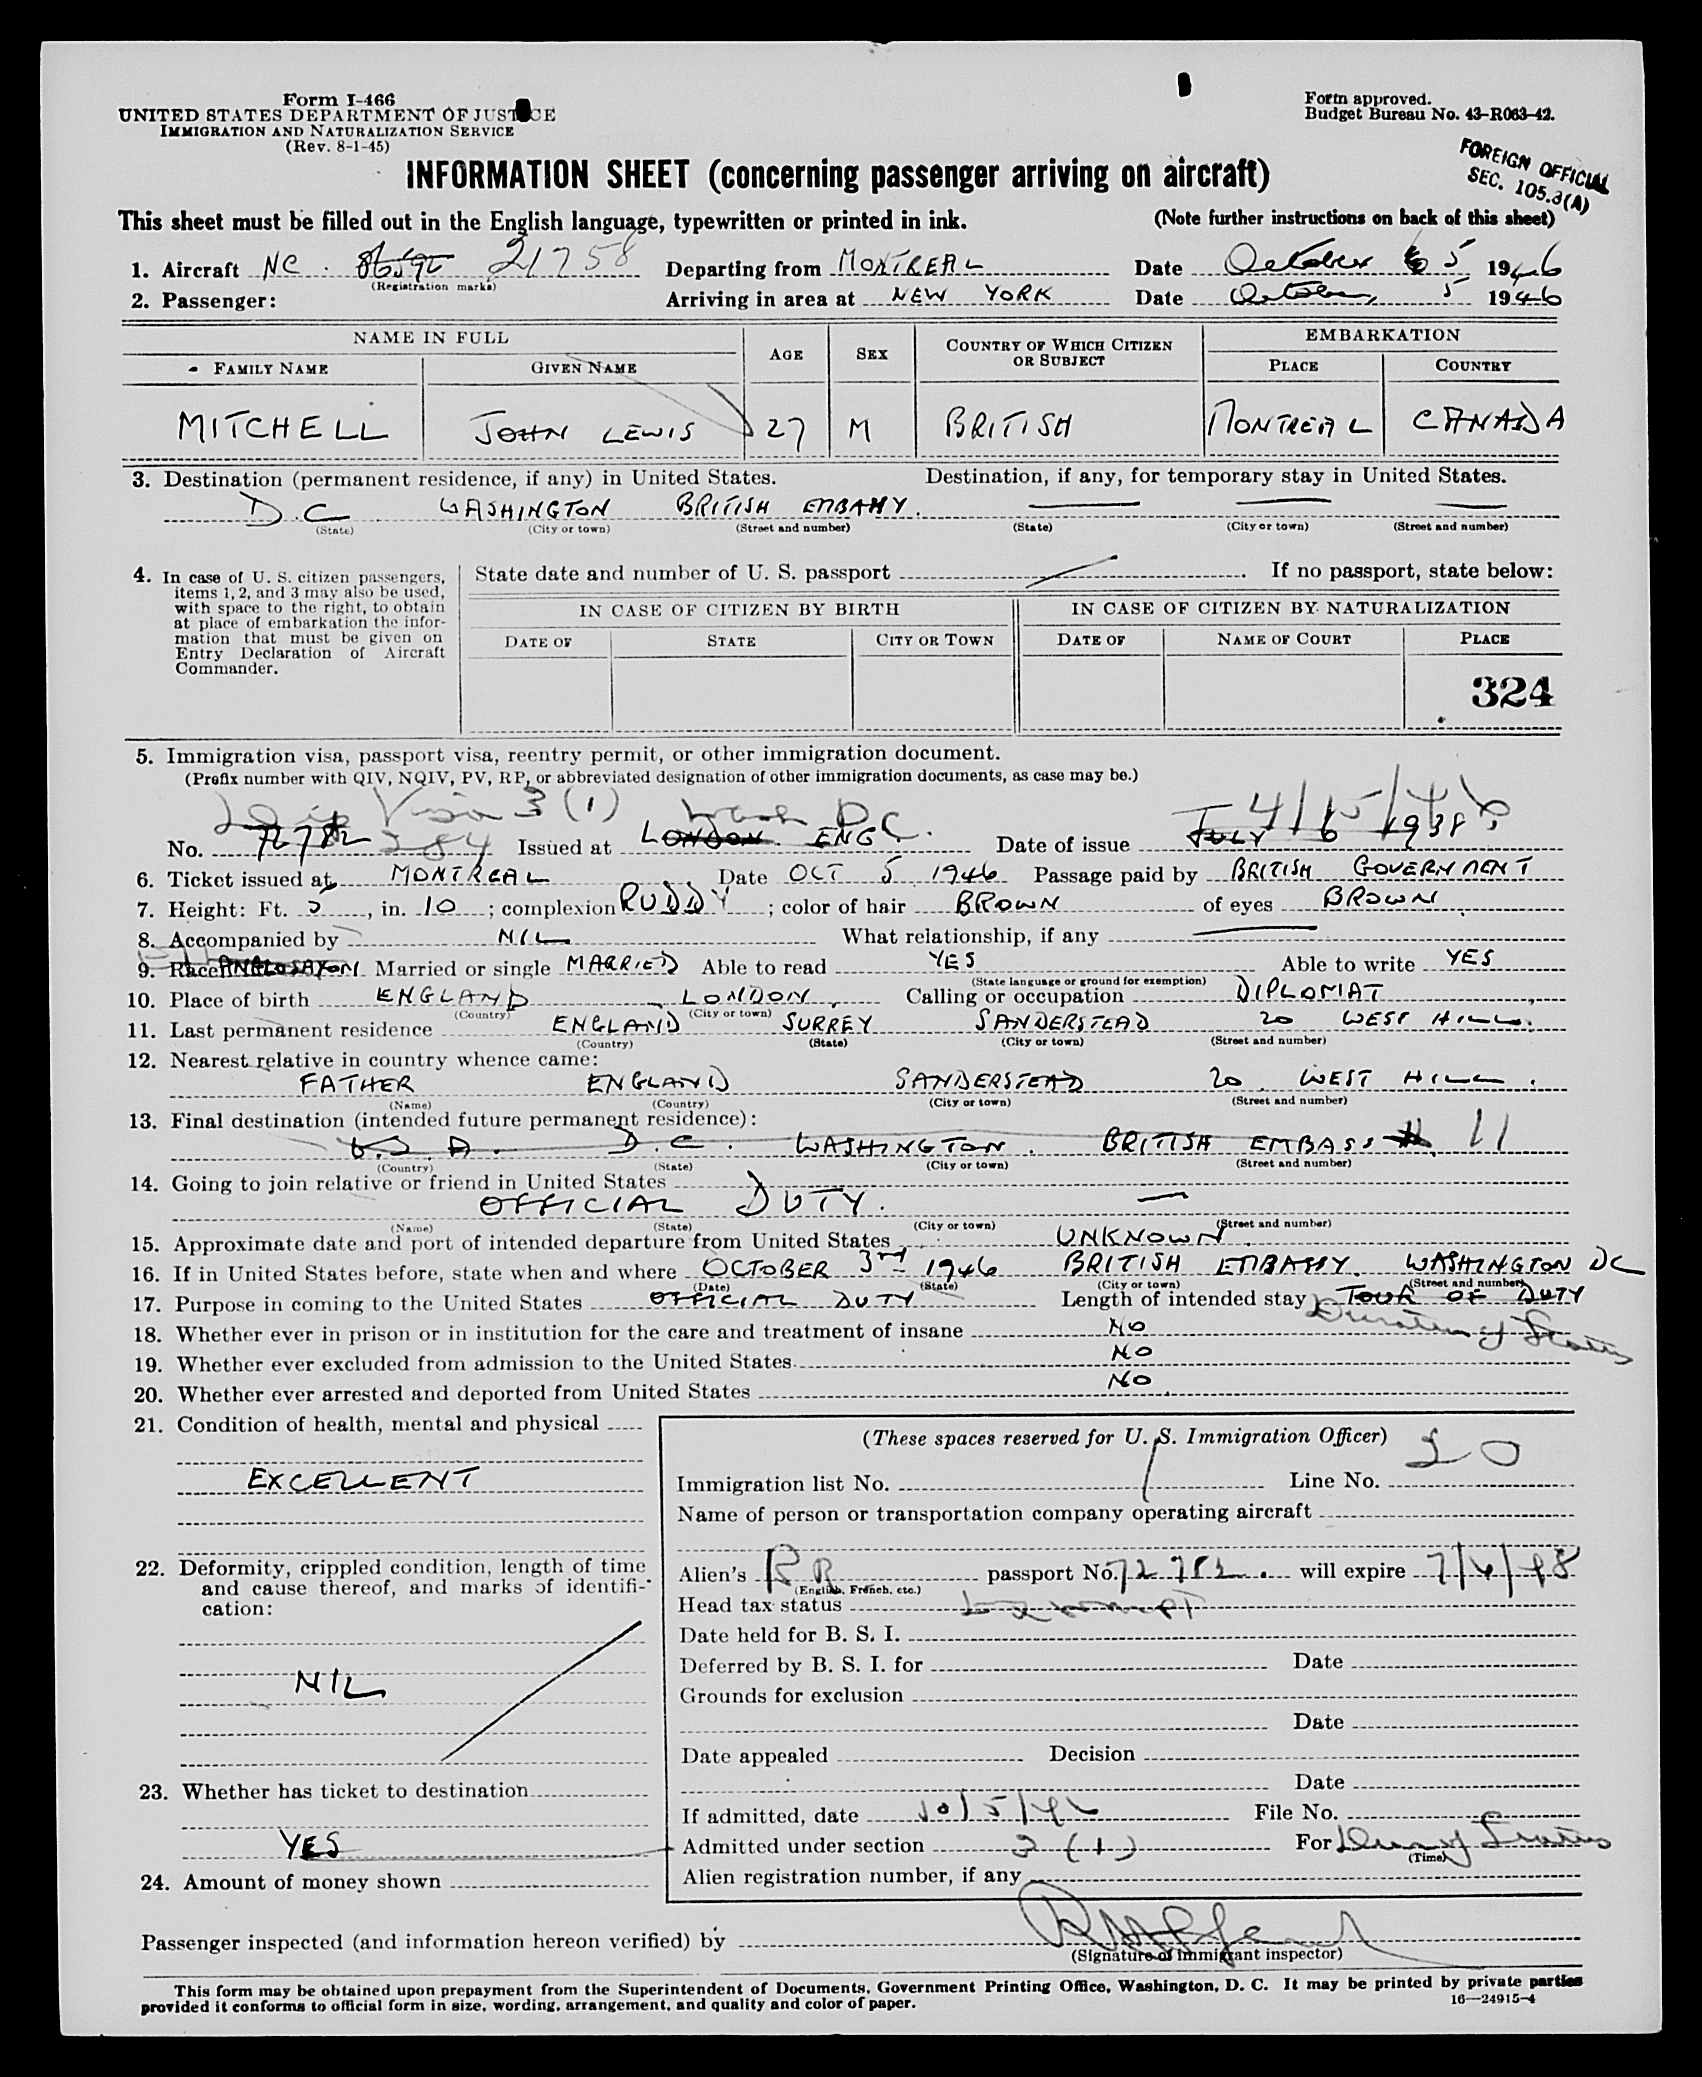 Form I-466
UNITED STATES DEPARTMENT OF JUSTICE
IMMIGRATION AND NATURALIZATION SERVICE
(Rev. 8-1-45)
Form approved.
Budget Bureau No. 43-R063-42.
FOREIGN OFFICIAL
SEC. 105.3(A)
INFORMATION SHEET (concerning passenger arriving on aircraft)
This sheet must be filled out in the English language, typewritten or printed in ink. (Note further instructions on back of this sheet)
1. Aircraft NC. 86592 21758 Departing from MONTREAL Date October 5 1946
(Registration marks)
2. Passenger: Arriving in area at NEW YORK Date October 5 1946
NAME IN FULL AGE SEX COUNTRY OF WHICH CITIZEN OR SUBJECT EMBARKATION
FAMILY NAME GIVEN NAME PLACE COUNTRY
MITCHELL JOHN LEWIS 27 M BRITISH MONTREAL CANADA
3. Destination (permanent residence, if any) in United States. Destination, if any, for temporary stay in United States.
D.C. WASHINGTON BRITISH EMBASSY.
(State) (City or town) (Street and number) (State) (City or town) (Street and number)
4. In case of U. S. citizen passengers, items 1, 2, and 3 may also be used, with space to the right, to obtain at place of embarkation the information that must be given on Entry Declaration of Aircraft Commander.
State date and number of U. S. passport . If no passport, state below:
IN CASE OF CITIZEN BY BIRTH IN CASE OF CITIZEN BY NATURALIZATION
DATE OF STATE CITY OR TOWN DATE OF NAME OF COURT PLACE
324
5. Immigration visa, passport visa, reentry permit, or other immigration document.
(Prefix number with QIV, NQIV, PV, RP, or abbreviated designation of other immigration documents, as case may be.)
Dip Visa 3 (1) Wash D.C. 4/15/46
No. 72782 284 Issued at LONDON. ENG Date of issue JULY 6 1938
6. Ticket issued at MONTREAL Date OCT 5 1946 Passage paid by BRITISH GOVERNMENT
7. Height: Ft. 5, in. 10; complexion RUDDY; color of hair BROWN of eyes BROWN
8. Accompanied by NIL What relationship, if any
9. Race ANGLOSAXON Married or single MARRIED Able to read YES Able to write YES
(State language or ground for exemption)
10. Place of birth ENGLAND, LONDON, Calling or occupation DIPLOMAT
(Country) (City or town)
11. Last permanent residence ENGLAND SURREY SANDERSTEAD 20 WEST HILL.
(Country) (State) (City or town) (Street and number)
12. Nearest relative in country whence came:
FATHER ENGLAND SANDERSTEAD 20 WEST HILL.
(Name) (Country) (City or town) (Street and number)
13. Final destination (intended future permanent residence):
U.S.A. D.C. WASHINGTON. BRITISH EMBASSY. 11
(Country) (State) (City or town) (Street and number)
14. Going to join relative or friend in United States
OFFICIAL DUTY.
(Name) (State) (City or town) (Street and number)
15. Approximate date and port of intended departure from United States UNKNOWN.
16. If in United States before, state when and where OCTOBER 3rd 1946 BRITISH EMBASSY. WASHINGTON DC
(Date) (State) (City or town) (Street and number)
17. Purpose in coming to the United States OFFICIAL DUTY Length of intended stay TOUR OF DUTY
Duration of Status
18. Whether ever in prison or in institution for the care and treatment of insane NO
19. Whether ever excluded from admission to the United States. NO
20. Whether ever arrested and deported from United States NO
21. Condition of health, mental and physical
EXCELLENT
22. Deformity, crippled condition, length of time and cause thereof, and marks of identification:
NIL
23. Whether has ticket to destination
YES
24. Amount of money shown
(These spaces reserved for U. S. Immigration Officer)
Immigration list No. 1 Line No. 20
Name of person or transportation company operating aircraft
Alien's passport No. 72782. will expire 7/6/48
(English, French, etc.)
Head tax status Exempt
Date held for B. S. I.
Deferred by B. S. I. for Date
Grounds for exclusion
Date
Date appealed Decision
Date
If admitted, date 10/5/46 File No.
Admitted under section 3 (1) For Dur of Status
(Time)
Alien registration number, if any
Passenger inspected (and information hereon verified) by
(Signature of immigrant inspector)
This form may be obtained upon prepayment from the Superintendent of Documents, Government Printing Office, Washington, D. C. It may be printed by private parties
provided it conforms to official form in size, wording, arrangement, and quality and color of paper.
16—24915-4